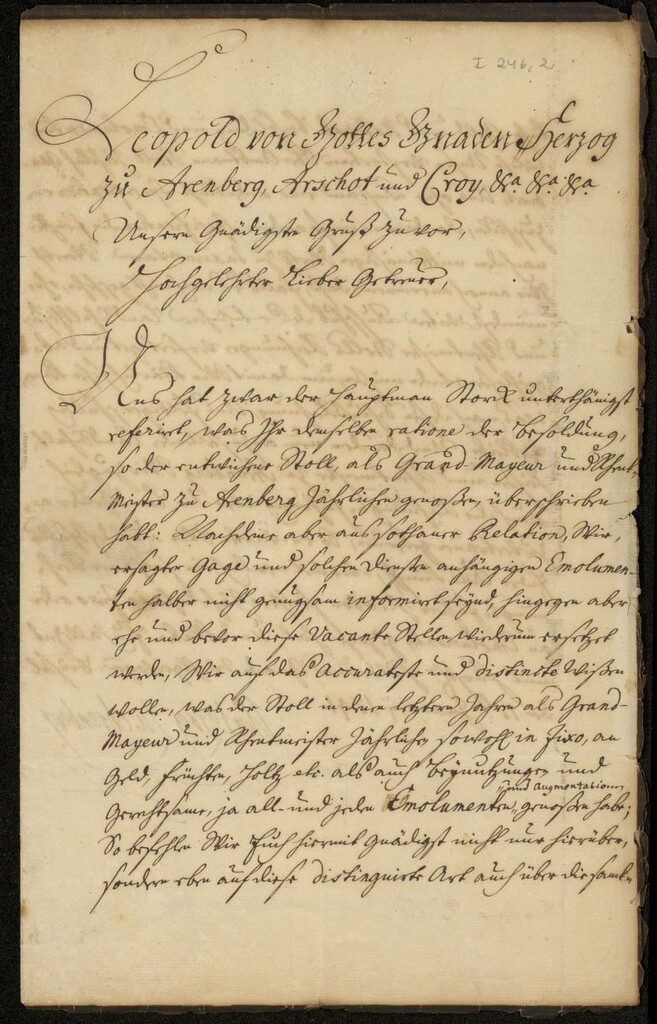 I 246, 2
Leopold von Gottes Gnaden, Herzog
zu Arenberg, Arschot und Croy, &a. &a. &a.
Unsern Gnädigsten Gruß zuvor,
Hochgelehrter Lieber Getreuer,
Uns hat zwar der Hauptman Storck unterthänigst
referiret, was Ihr demselben ratione der Besoldung,
so der entwichene Stoll, als Grand-Mayeur und Rhent-
Meister zu Arenberg Jährlichen genoßen, überschrieben
habt: Nachdeme aber aus sothaner Relation, Wir,
ersagter Gage und solchen Diensten anhängigen Emolumen-
ten halber nicht genugsam informiret seynd, hingegen aber
ehe und bevor diese Vacante Stellen wiederum ersetzet
werden, Wir auf das Accurateste und distincte wißen
wollen, was der Stoll in denen letztern Jahren als Grand-
Mayeur und Rhentmeister Jährlichen sowohl in Fixo, an
Geld, Früchten, Holtz etc. als auch Benutzungen und
Gerechtsame, ja all- und jeden Emolumenten, und Augmentationen, genoßen habe;
So befehlen Wir Euch hiermit Gnädigst nicht nur hierüber,
sondern eben auf diese distinguirte Art auch über die samt-